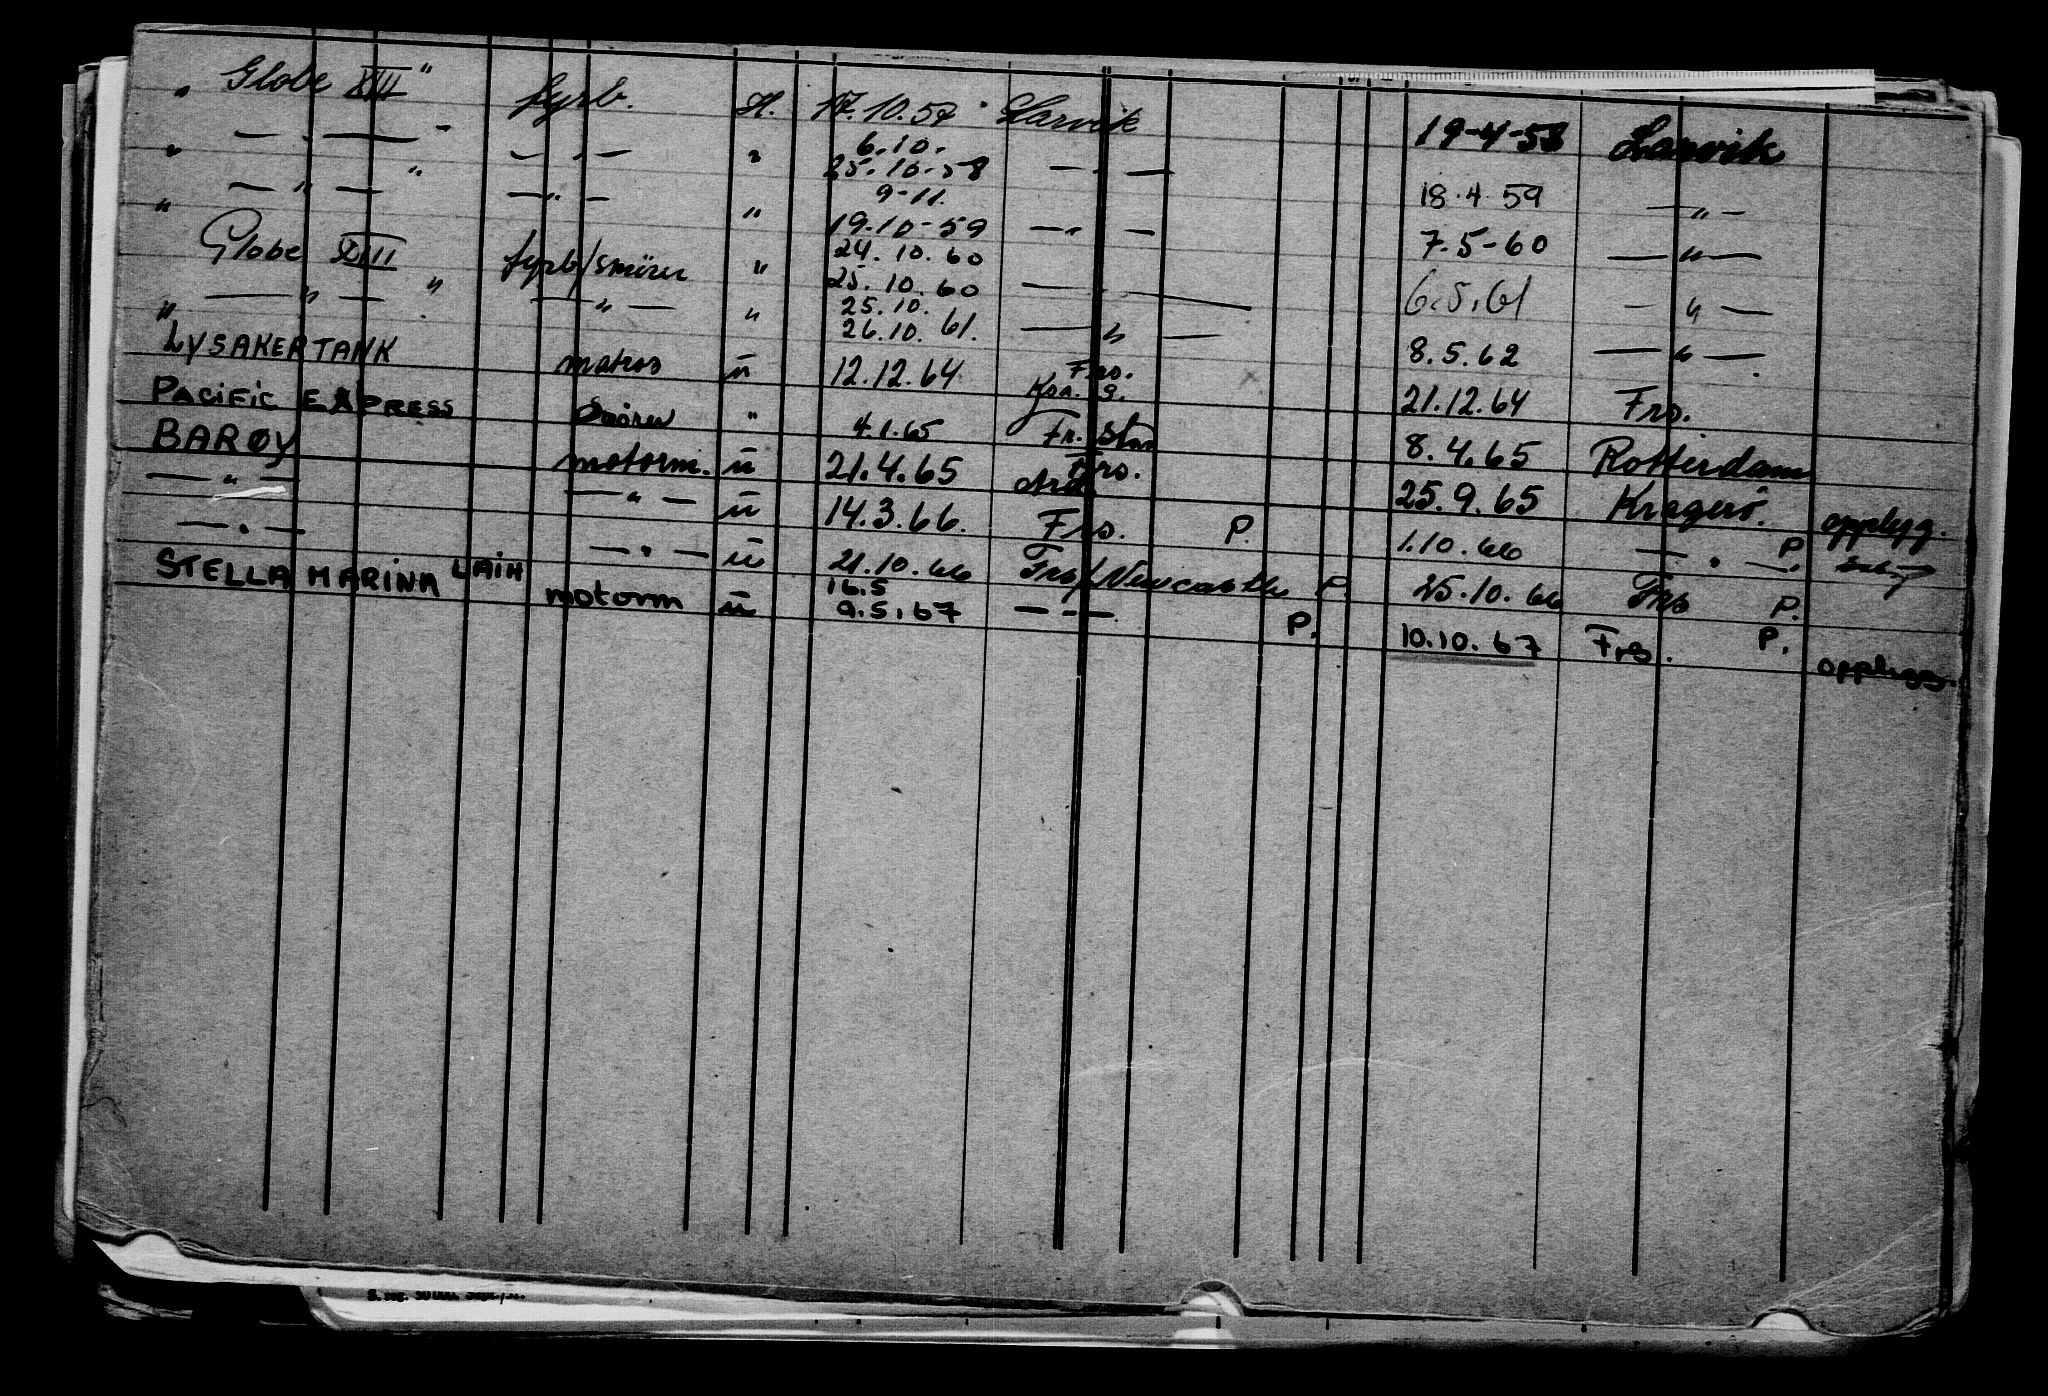 " Globe XIII " fyrb. H. 17.10.57 Larvik 19-4-58 Larvik
" — " — " — " — " 6.10. 25.10-58 — " — 18.4.59 — " —
" — " — " — " — " 9-11. 19.10-59 — " — 7.5-60 — " —
Globe XIII fyrb/smörer " 24.10.60 25.10.60 — " — 6.5.61 — " —
" — " — " — " — " 25.10. 26.10.61. — " — 8.5.62 — " —
LYSAKERTANK matros " 12.12.64 Frs. 21.12.64 Frs.
PACIFIC EXPRESS Smörer " 4.1.65 Fr. Stad 8.4.65 Rotterdam
BARØY motorm. " 21.4.65 Frs. 25.9.65 Kragerö. opplegg.
— " — — " — " 14.3.66. Frs. P. 1.10.66 — " — P.
— " — — " — " 21.10.66 Frs/Newcastle P. 25.10.66 Frs P.
STELLA MARINA LAIH motorm " 16.5 9.5.67 — " — P. 10.10.67 Frs. P. opplegg.